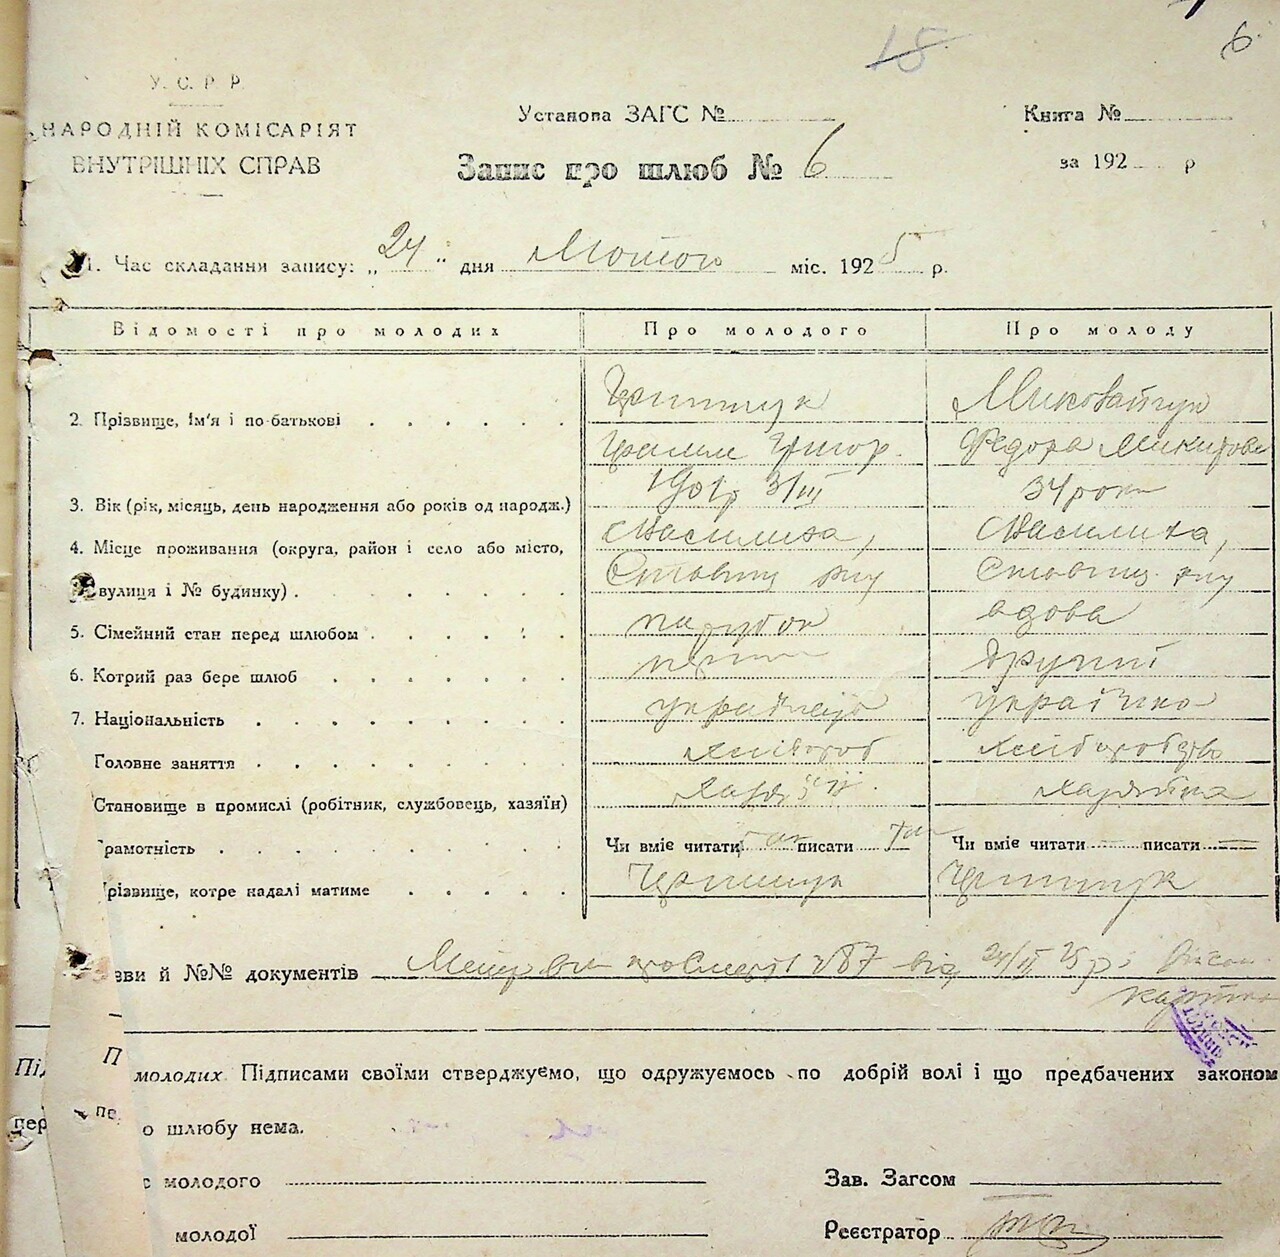 6
18
У. С. Р. Р.
НАРОДНІЙ КОМІСАРІЯТ
ВНУТРІШНІХ СПРАВ
Установа ЗАГС №
Книга №
Запис про шлюб № 6
за 192 р
1. Час складання запису: „24" дня Лютого міс. 1925 р.
Відомості про молодих Про молодого Про молоду
2. Прізвище, Ім'я і по-батькові Грищук Миколайчук
Григор. Федора Микитова
3. Вік (рік, місяць, день народження або років од народж.) 1901р 3/III 34 роки
4. Місце проживання (округа, район і село або місто,
вулиця і № будинку)
5. Сімейний стан перед шлюбом парубок вдова
6. Котрий раз бере шлюб перший другий
7. Національність українець українка
Головне заняття хлібороб хліборобство
Становище в промислі (робітник, службовець, хазяїн) хазяїн хазяйка
рамотність Чи вміє читати так писати так Чи вміє читати — писати —
різвище, котре надалі матиме Грищук Грищук
зви й №№ документів 287 від 24/II 25 р.
картка
молодих Підписами своїми стверджуємо, що одружуємось по добрій волі і що предбачених законом
пер о шлюбу нема.
с молодого Зав. Загсом
молодої Реєстратор